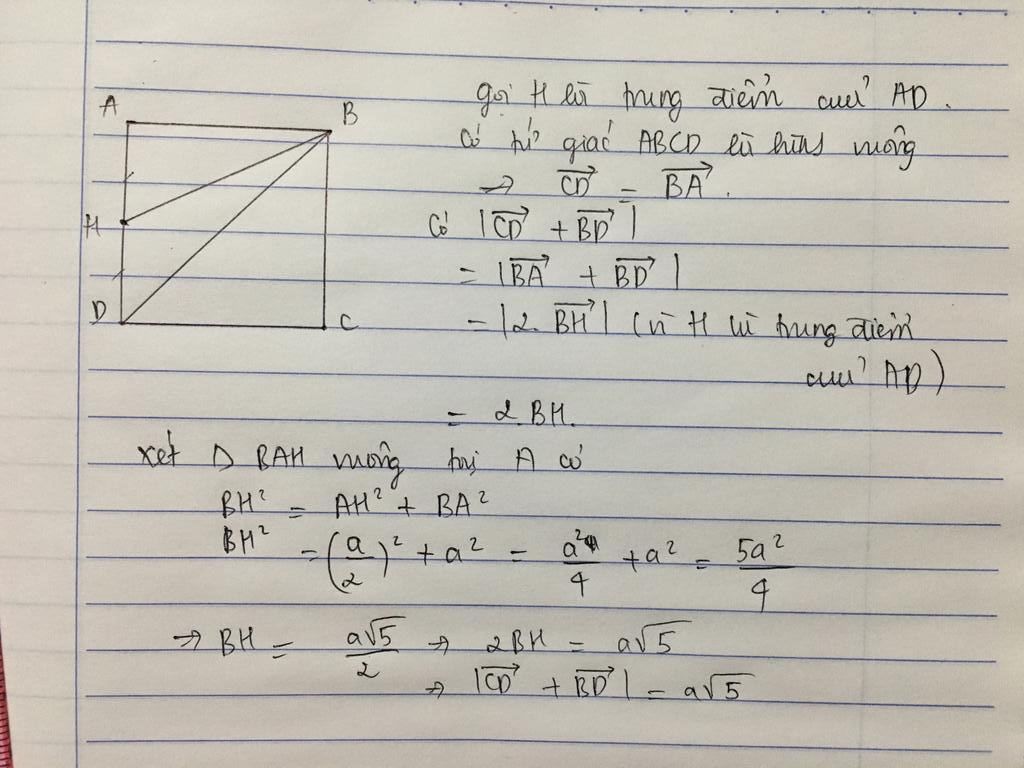 A
B
H
D
C
gọi H là trung điểm của AD.
Có tứ giác ABCD là hình vuông
→ \overrightarrow{CD} = \overrightarrow{BA}.
Có |\overrightarrow{CD} + \overrightarrow{BD}|
= |\overrightarrow{BA} + \overrightarrow{BD}|
= |2.\overrightarrow{BH}| (vì H là trung điểm
của AD)
= 2.BH.
xét Δ BAH vuông tại A có
BH² = AH² + BA²
BH² = (a/2)² + a² = a²/4 + a² = 5a²/4
→ BH = a√5/2 → 2BH = a√5
→ |\overrightarrow{CD} + \overrightarrow{BD}| = a√5